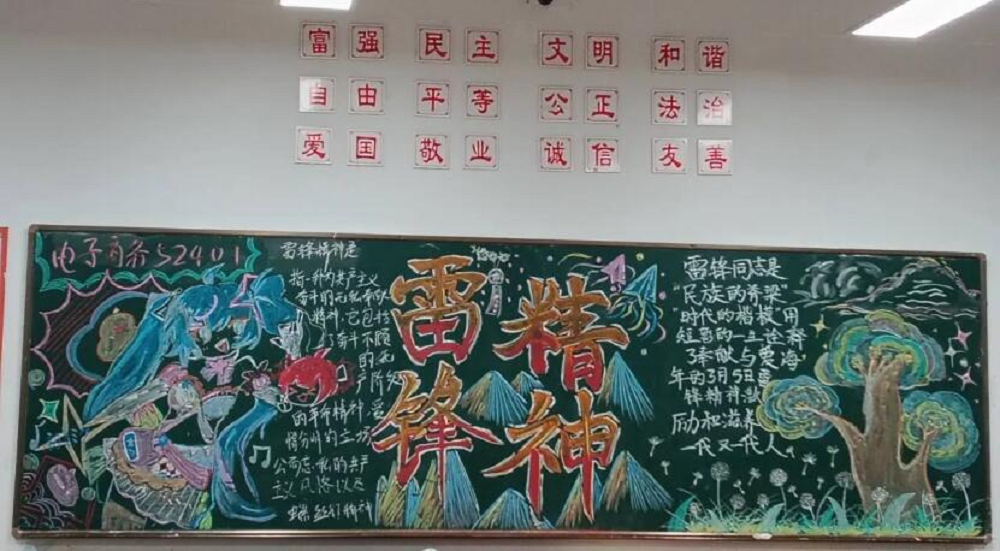 富强 民主 文明 和谐
自由 平等 公正 法治
爱国 敬业 诚信 友善
电子商务S2401
雷锋精神是
指一种为共产主义
奋斗的无私奉献
的精神,它包括
了奋斗不顾
的无
产阶级
的革命精神,爱
憎分明的立场
公而忘私的共产
主义风格以及
螺丝钉精神
雷锋
精神
雷锋同志是
“民族的脊梁”
时代的楷模”用
短暂的一生诠释
了奉献与
年的3月5日雷
锋精神激
励和滋养
一代又一代人